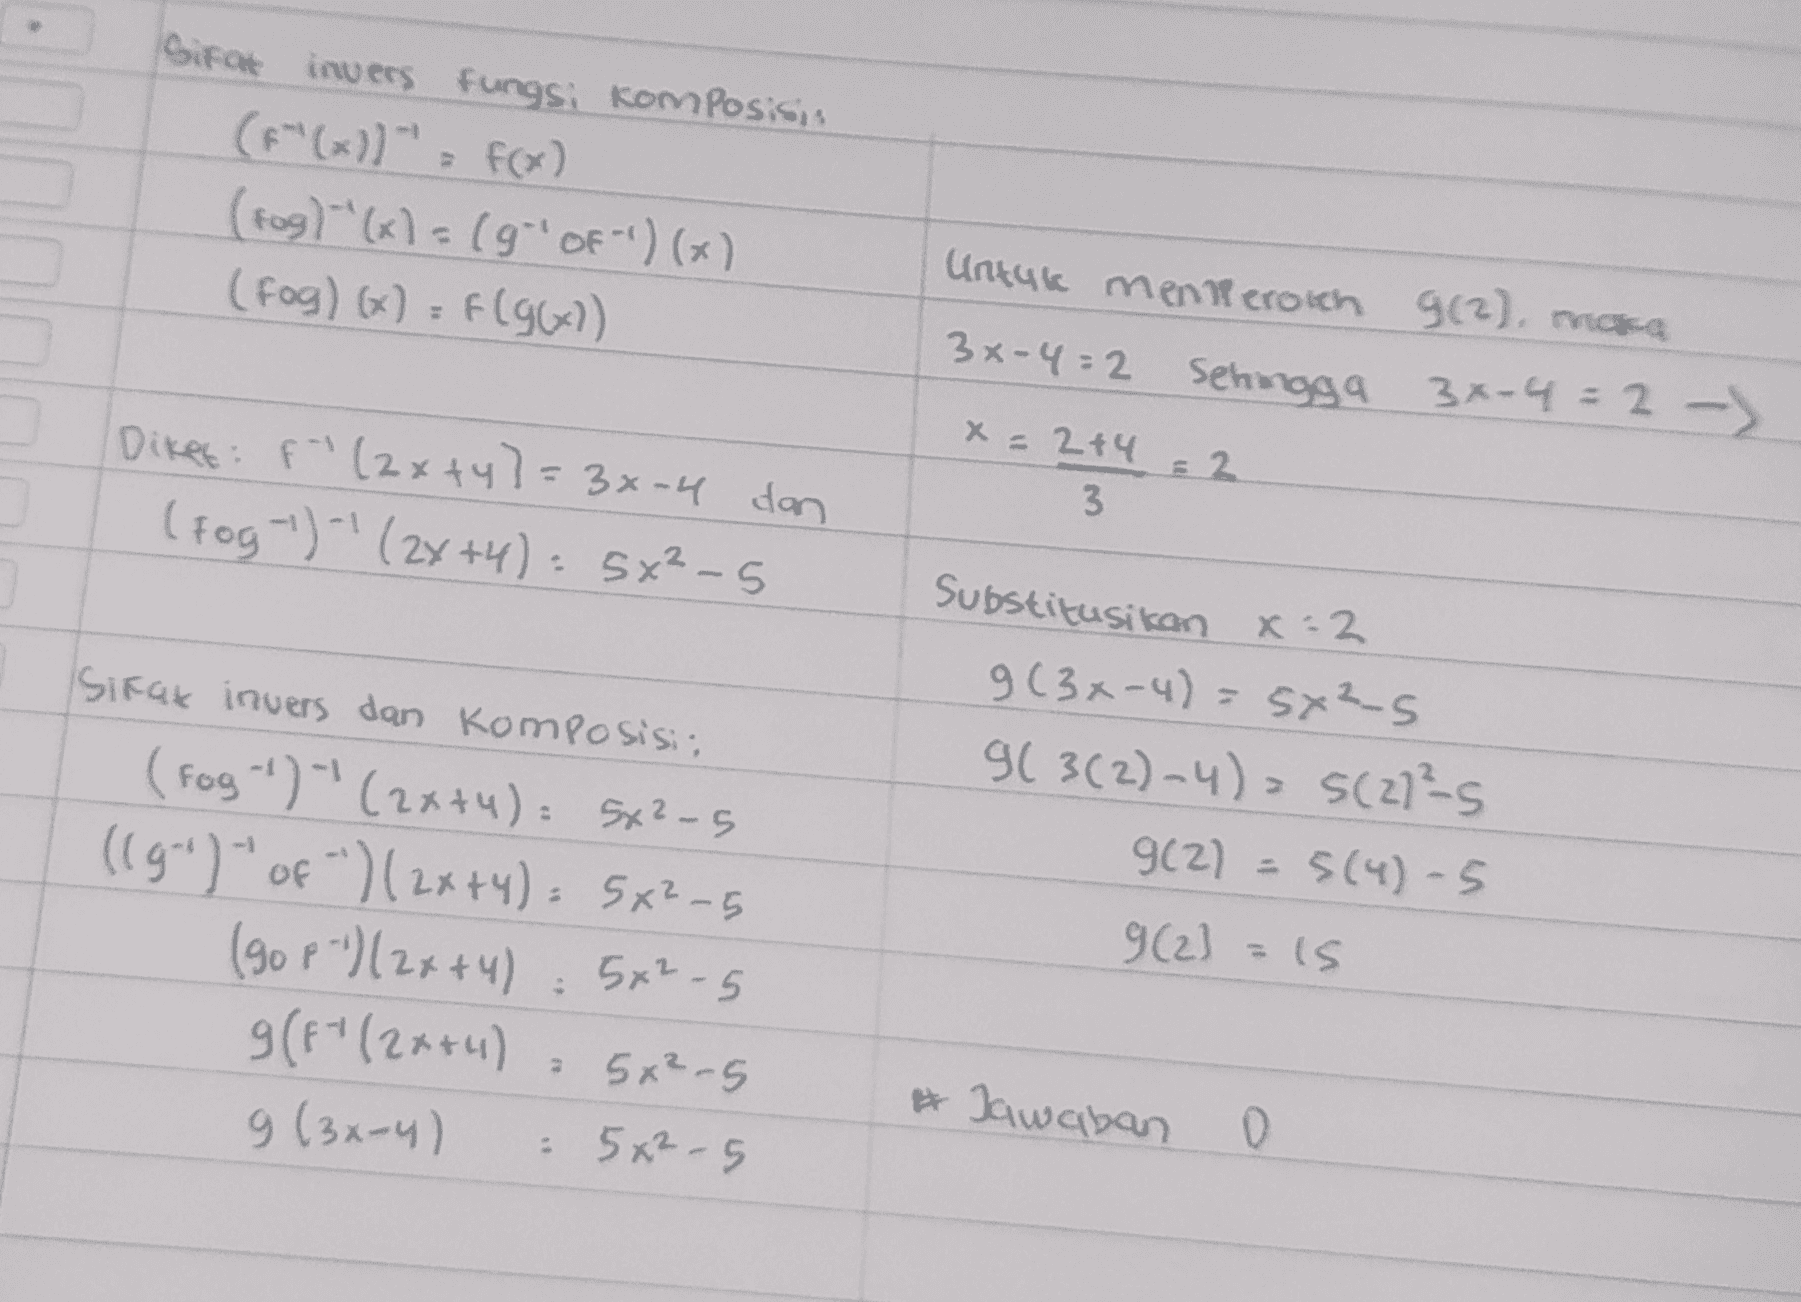 Sifat invers fungsi komposisi:
(f⁻¹(x))⁻¹ = f(x)
(fog)⁻¹(x) = (g⁻¹of⁻¹)(x)
(fog)(x) = f(g(x))
Diket: f⁻¹(2x+4) = 3x-4 dan
(fog⁻¹)⁻¹(2x+4) = 5x²-5
Sifat invers dan komposisi:
(fog⁻¹)⁻¹(2x+4) = 5x²-5
((g⁻¹)⁻¹of⁻¹)(2x+4) = 5x²-5
(gof⁻¹)(2x+4) = 5x²-5
g(f⁻¹(2x+4) = 5x²-5
g(3x-4) = 5x²-5
Untuk g(2), maka
3x-4=2 Sehingga 3x-4=2 →
x = 2+4 = 2
3
Substitusikan x=2
g(3x-4) = 5x²-5
g(3(2)-4) = 5(2)²-5
g(2) = 5(4)-5
g(2) = 15
* Jawaban D